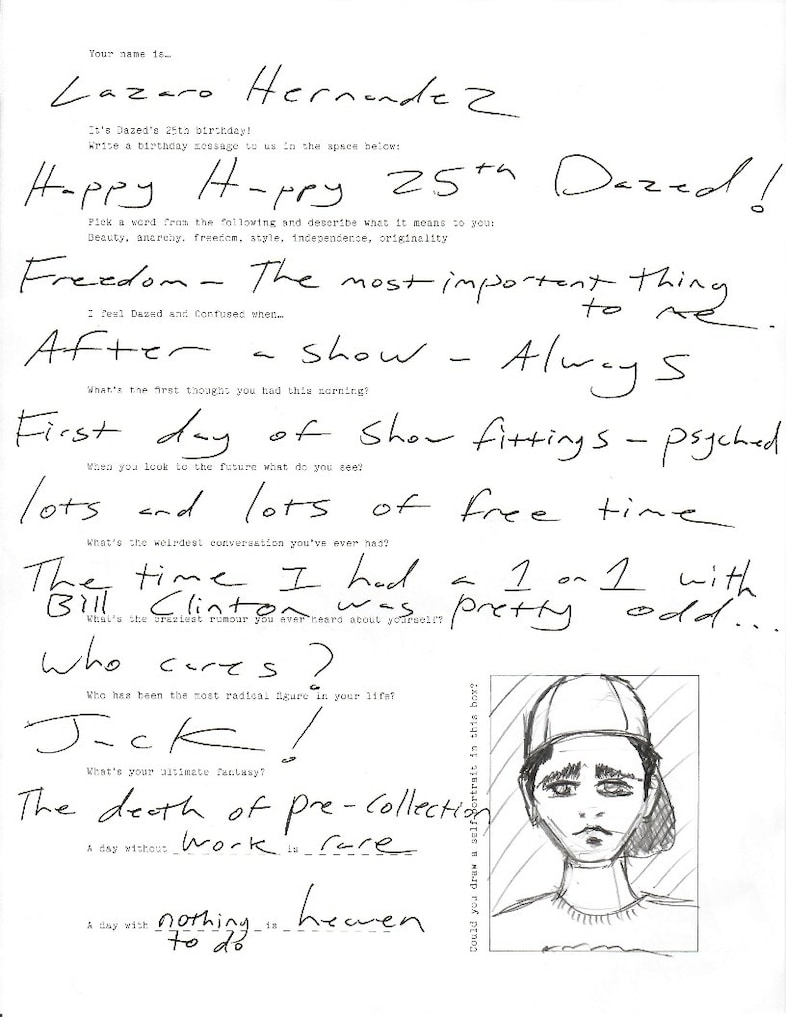 Your name is…
Lazaro Hernandez
It's Dazed's 25th birthday!
Write a birthday message to us in the space below:
Happy Happy 25th Dazed!
Pick a word from the following and describe what it means to you:
Beauty, anarchy, freedom, style, independence, originality
Freedom - The most important thing
to me.
I feel Dazed and Confused when…
After a show - Always
What's the first thought you had this morning?
First day of show fittings - psyched
When you look to the future what do you see?
lots and lots of free time
What's the weirdest conversation you've ever had?
The time I had a 1 on 1 with
Bill Clinton was pretty odd...
What's the craziest rumour you ever heard about yourself?
Who cares?
Who has been the most radical figure in your life?
Jack!
What's your ultimate fantasy?
The death of pre-collection
A day without work is rare
A day with nothing is heaven
to do
Could you draw a self-portrait in this box?